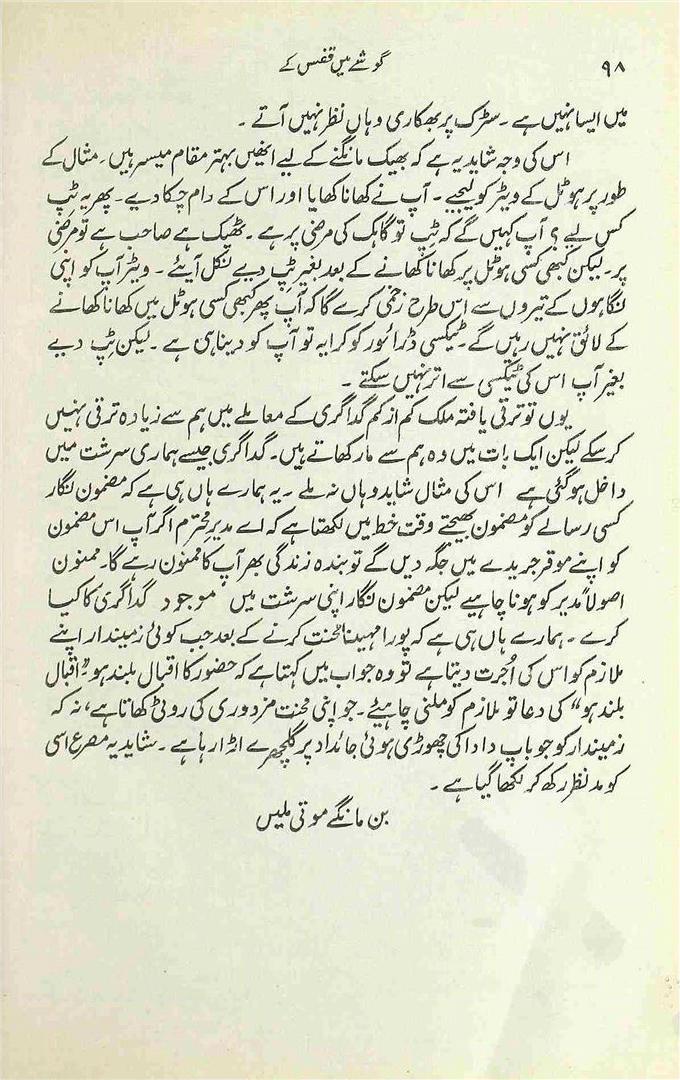 ۹۸
گوشے میں قفس کے
میں ایسا نہیں ہے ۔ سڑک پر بھکاری وہاں نظر نہیں آتے ۔
اس کی وجہ شاید یہ ہے کہ بھیک مانگنے کے لیے انھیں بہتر مقام میسر ہیں ۔ مثال کے
طور پر ہوٹل کے ویٹر کو لیجیے ۔ آپ نے کھانا کھایا اور اس کے دام چکا دیے ۔ پھر یہ ٹِپ
کس لیے ؟ آپ کہیں گے کہ ٹِپ تو گاہک کی مرضی پر ہے ۔ ٹھیک ہے صاحب ہے تو مرضی
پر ۔ لیکن کبھی کسی ہوٹل پر کھانا کھانے کے بعد بغیر ٹِپ دیے نکل آیئے ۔ ویٹر آپ کو اپنی
نگاہوں کے تیروں سے اس طرح زخمی کرے گا کہ آپ پھر کبھی کسی ہوٹل میں کھانا کھانے
کے لائق نہیں رہیں گے ۔ ٹیکسی ڈرائور کو کرایہ تو آپ کو دینا ہی ہے ۔ لیکن ٹِپ دیے
بغیر آپ اس کی ٹیکسی سے اتر نہیں سکتے ۔
یوں تو ترقی یافتہ ملک کم از کم گداگری کے معاملے میں ہم سے زیادہ ترقی نہیں
کر سکے لیکن ایک بات میں وہ ہم سے مار کھاتے ہیں ۔ گداگری جیسے ہماری سرشت میں
داخل ہو گئی ہے اس کی مثال شاید وہاں نہ ملے ۔ یہ ہمارے ہاں ہی ہے کہ مضمون نگار
کسی رسالے کو مضمون بھیجتے وقت خط میں لکھتا ہے کہ اے مدیرِ محترم اگر آپ اس مضمون
کو اپنے موقر جریدے میں جگہ دیں گے تو بندہ زندگی بھر آپ کا ممنون رہے گا ۔ ممنون
اصولاً مدیر کو ہونا چاہیے لیکن مضمون نگار اپنی سرشت میں موجود گداگری کا کیا
کرے ۔ ہمارے ہاں ہی ہے کہ پورا مہینا محنت کرنے کے بعد جب کوئی زمیندار اپنے
ملازم کو اس کی اُجرت دیتا ہے تو وہ جواب میں کہتا ہے کہ حضور کا اقبال بلند ہو “اقبال
بلند ہو” کی دعا تو ملازم کو ملنی چاہیئے ۔ جو اپنی محنت مزدوری کی روٹی کھاتا ہے ، نہ کہ
زمیندار کو جو باپ دادا کی چھوڑی ہوئی جائداد پر گلچھرے اڑا رہا ہے ۔ شاید یہ مصرع اسی
کو مد نظر رکھ کر لکھا گیا ہے ۔
بن مانگے موتی ملیں